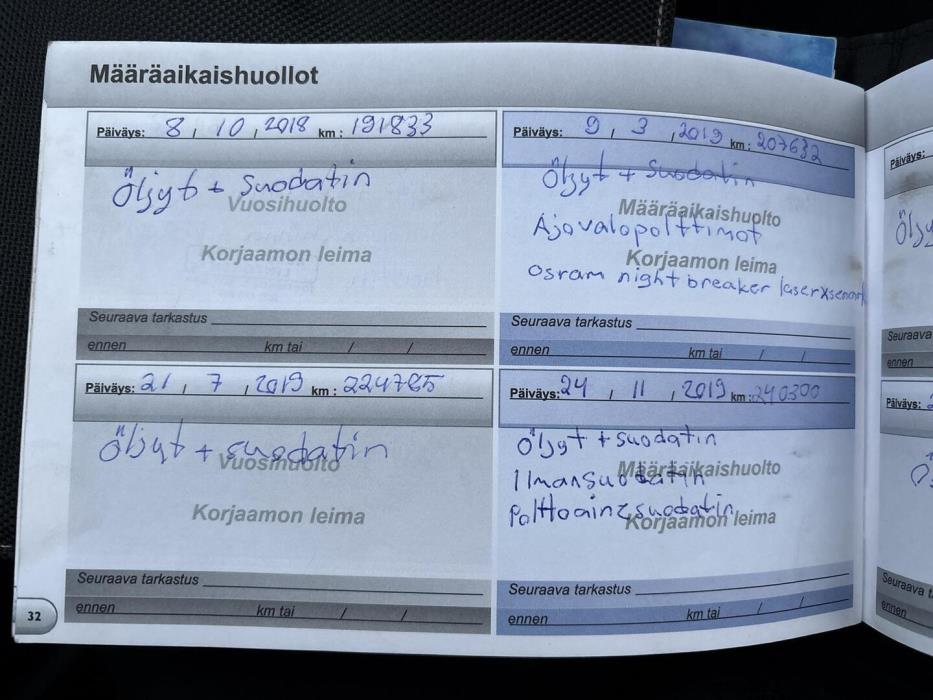 Määräaikaishuollot
Päiväys: 8 / 10 / 2018 km: 191833
Öljyt + suodatin
Vuosihuolto
Korjaamon leima
Seuraava tarkastus
ennen km tai / /
Päiväys: 9 / 3 / 2019 km: 207632
Öljyt + suodatin
Määräaikaishuolto
Ajovalopolttimot
Korjaamon leima
osram night breaker laser
Seuraava tarkastus
ennen km tai / /
Päiväys: 21 / 7 / 2019 km: 224785
Öljyt + suodatin
Vuosihuolto
Korjaamon leima
Seuraava tarkastus
ennen km tai / /
Päiväys: 24 / 11 / 2019 km: 240300
Öljyt + suodatin
Ilmansuodatin
Määräaikaishuolto
polttoainesuodatin
Korjaamon leima
Seuraava tarkastus
ennen km tai / /
32
Päiväys:
Seuraava
ennen
Päiväys:
Seuraava
ennen